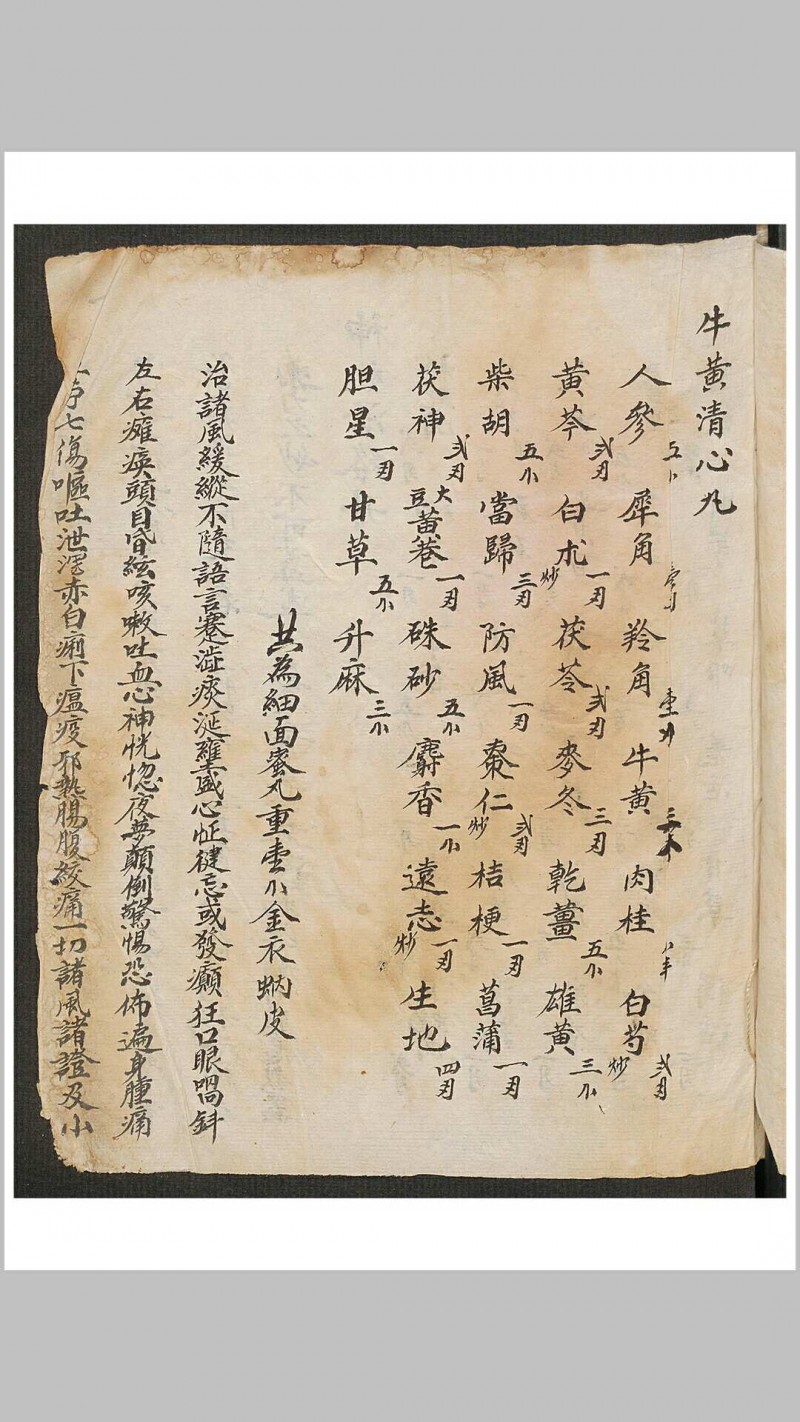 牛黃清心丸
人參 犀角 羚角 牛黃 肉桂 白芍炒弍刃
黃芩弍刃 白朮炒一刃 茯苓弍刃 麥冬三刃 乾薑五小 雄黃三小
柴胡五小 當歸三刃 防風一刃 棗仁炒弍刃 桔梗一刃 菖蒲一刃
茯神弍刃 大豆黃巻一刃 硃砂五小 麝香一小 遠志炒一刃 生地四刃
胆星一刃 甘草五小 升麻三小
共為細面蜜丸重壹小金衣蜹皮
治諸風緩縱不隨語言蹇澁痰涎壅盛心怔健忘或發癲狂口眼喎斜
左右癱瘓頭目昏絃咳嗽吐血心神恍惚夜夢顛倒驚惕恐佈遍身腫痛
七傷嘔吐泄瀉赤白痢下瘟疫邪熱腸腹絞痛一切諸風諸證及小